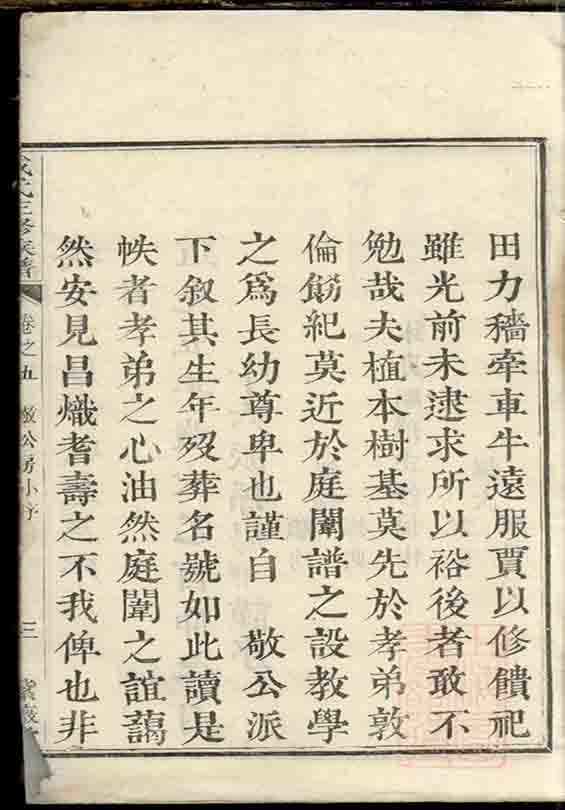 田力穡牽車牛遠服賈以修饋祀
雖光前未逮求所以裕後者敢不
勉哉夫植本樹基莫先於孝弟敦
倫飭紀莫近於庭闈譜之設教學
之爲長幼尊卑也謹自　敬公派
下叙其生年歿葬名號如此讀是
帙者孝弟之心油然庭闈之誼藹
然安見昌熾耆壽之不我俾也非
氏三修族譜
卷之五
敬公房小序
三